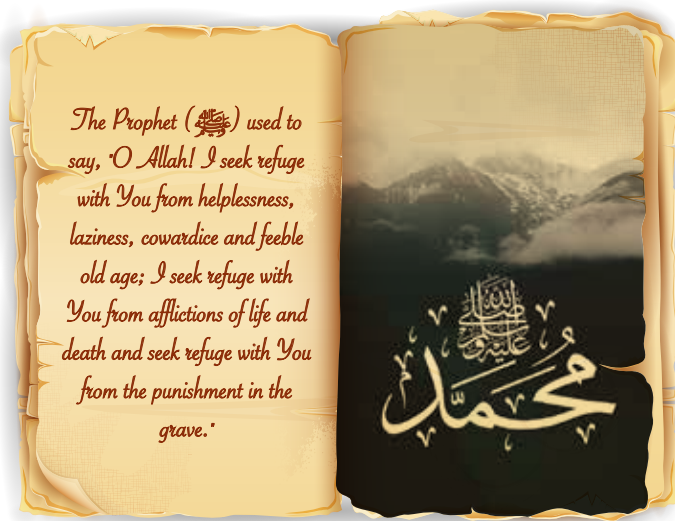 The Prophet (ﷺ) used to
say, "O Allah! I seek refuge
with You from helplessness,
laziness, cowardice and feeble
old age; I seek refuge with
You from afflictions of life and
death and seek refuge with You
from the punishment in the
grave."
صلى الله عليه وسلم
محمد